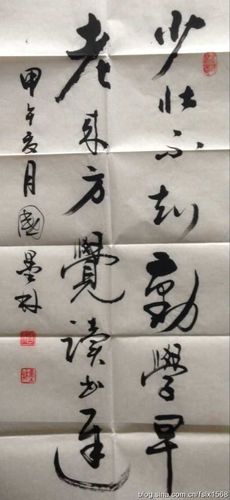 少壮不知勤學早
老來方覺讀书遲
甲午夏月國墨林
blog.sina.com.cn/fslx1568